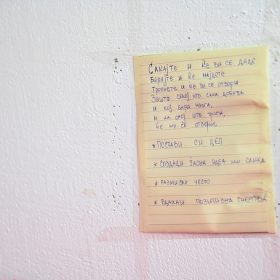 САКАЈТЕ И ЌЕ ВИ СЕ ДАДЕ
БАРАЈТЕ И ЌЕ НАЈДЕТЕ
ТРОПНЕТЕ И ЌЕ ВИ СЕ ОТВОРИ
ЗАШТО СЕКОЈ ШТО САКА ДОБИВА
И КОЈ БАРА НАОЃА,
И НА ОНОЈ ШТО ТРОПА,
ЌЕ МУ СЕ ОТВОРИ.
* ПОСТАВИ СИ ЦЕЛ
* СОЗДАДИ ЈАСНА ИДЕА ИЛИ СЛИКА
* РАЗМИСЛИ ЧЕСТО
* ПОЗИТИВНА ЕНЕРГИЈА